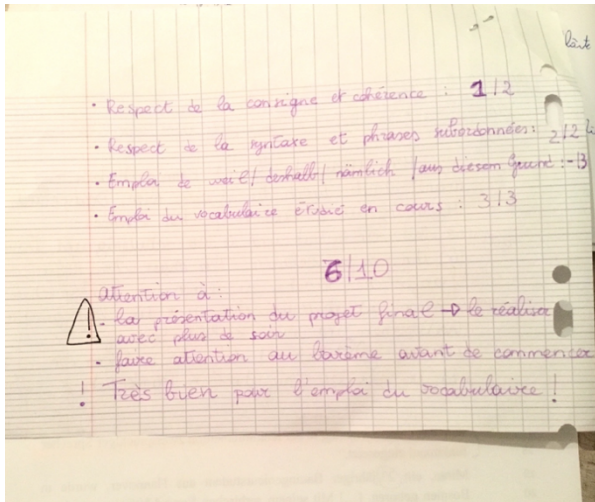 • Respect de la consigne et cohérence : 1/2
• Respect de la syntaxe et phrases subordonnées : 2/2
• Emploi de weil/ deshalb/ nämlich /aus diesem Grund : -/3
• Emploi du vocabulaire étudié en cours : 3/3
6/10
! Attention à :
- la présentation du projet final → le réaliser
avec plus de soin
- faire attention au barème avant de commencer
! Très bien pour l'emploi du vocabulaire !